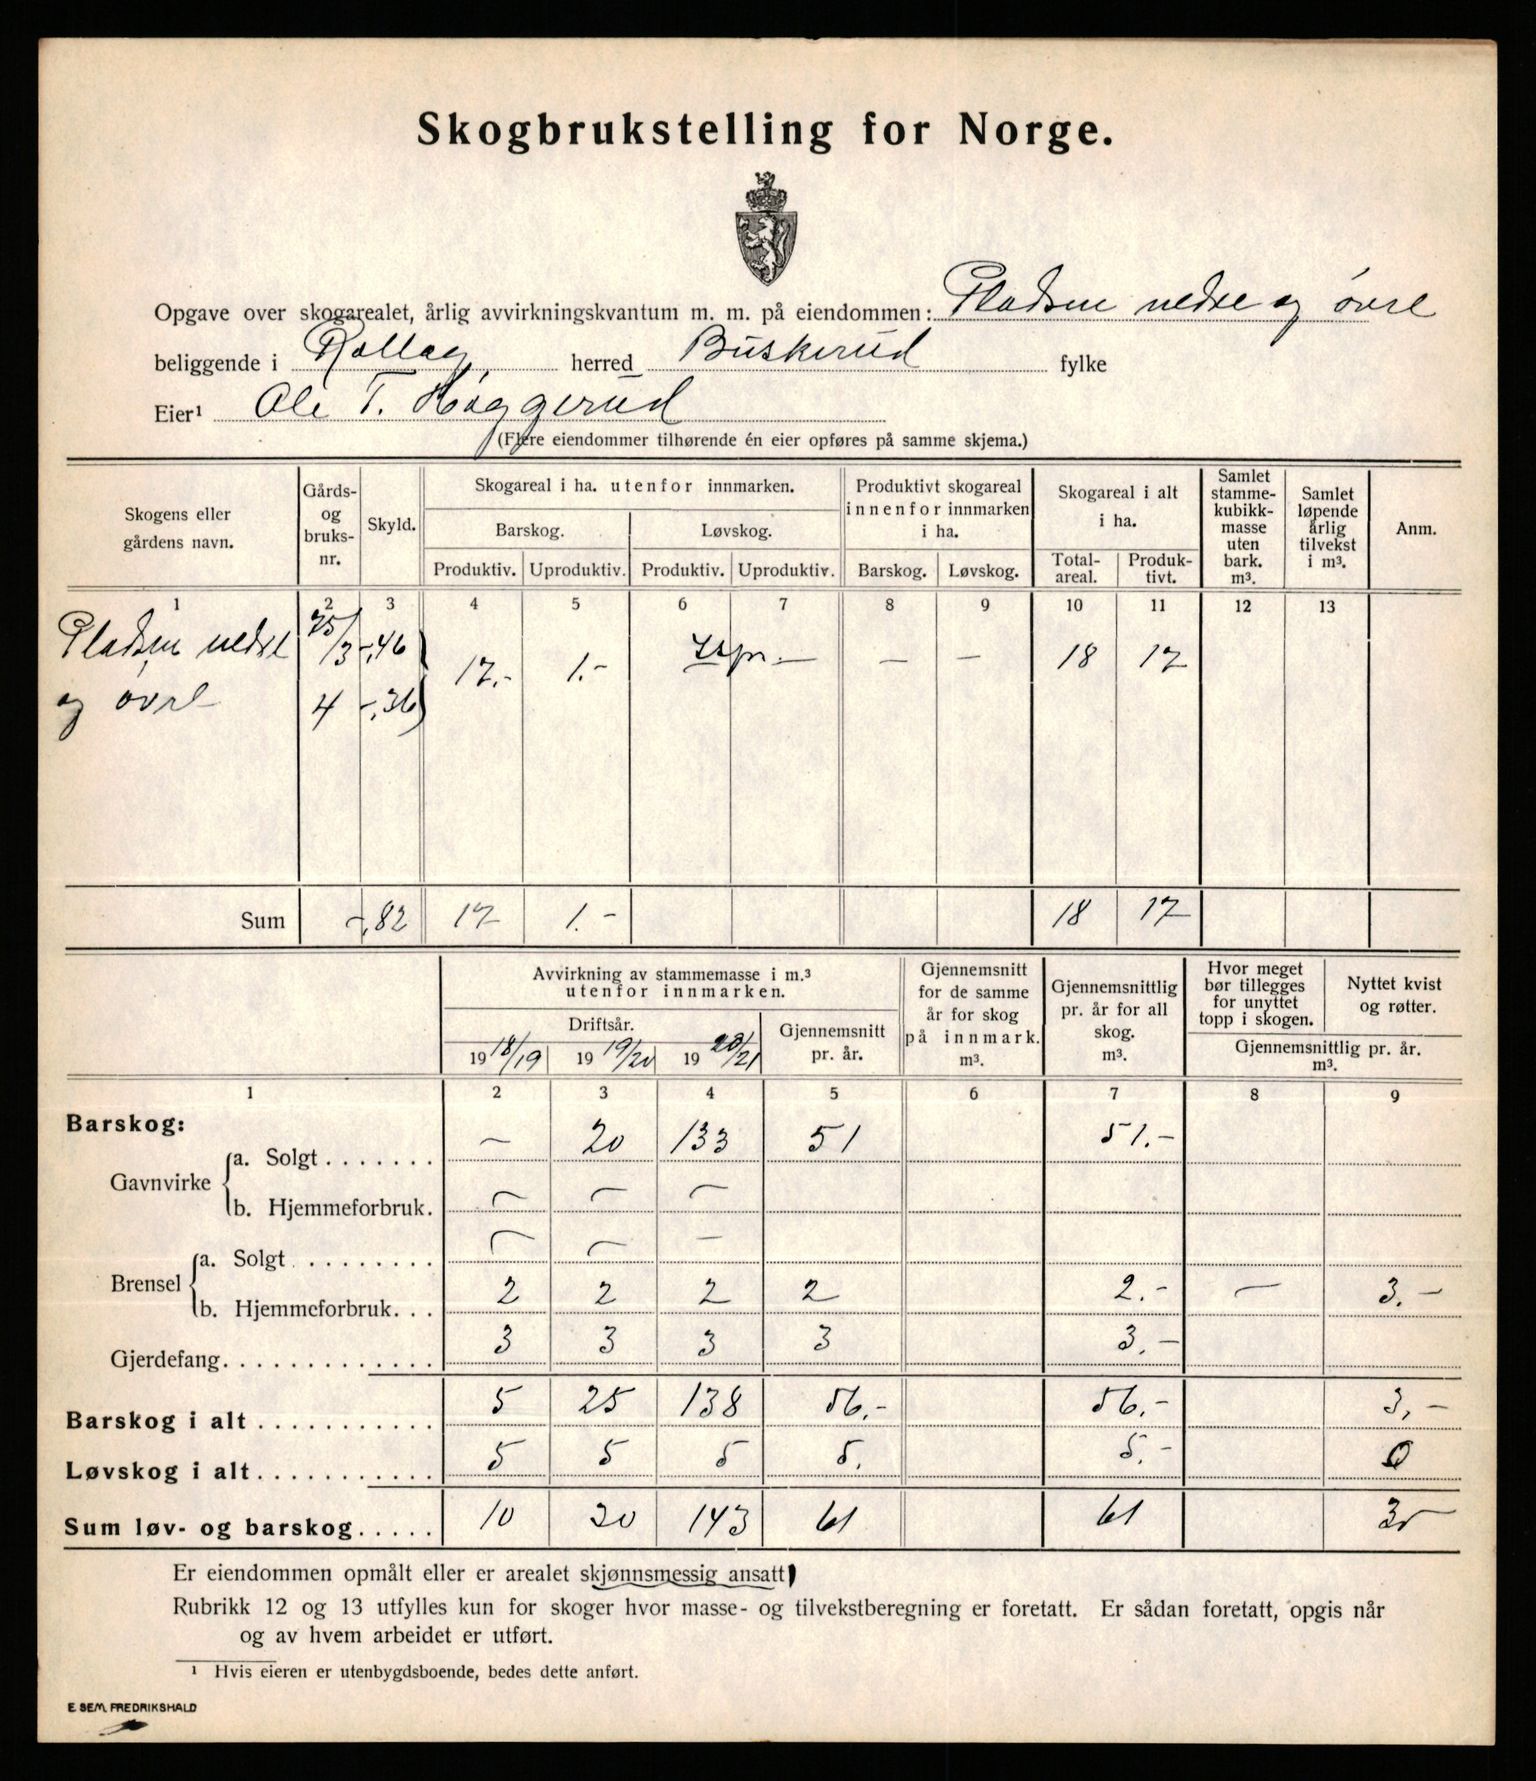 Skogbrukstelling for Norge.
Opgave over skogarealet, årlig avvirkningskvantum m. m. på eiendommen: Pladsen nedre og øvre
beliggende i Rollag herred Buskerud fylke
Eier¹ Ole T. Høggerud
(Flere eiendommer tilhørende én eier opføres på samme skjema.)
Skogens eller gårdens navn. Gårds- og bruks-nr. Skyld. Skogareal i ha. utenfor innmarken. Produktivt skogareal innenfor innmarken i ha. Skogareal i alt i ha. Samlet stamme-kubikk-masse uten bark. m³. Samlet løpende årlig tilvekst i m³. Anm.
Barskog. Løvskog.
Produktiv. Uproduktiv. Produktiv. Uproduktiv. Barskog. Løvskog. Total-areal. Produk-tivt.
1 2 3 4 5 6 7 8 9 10 11 12 13
Pladsen nedre 75/3 -,46 17.- 1.- — — 18 17
og øvre 4 -,36
Sum -,82 17 1.- 18 17
Avvirkning av stammemasse i m.³ utenfor innmarken. Gjennemsnitt for de samme år for skog på innmark. m³. Gjennemsnittlig pr. år for all skog. m³. Hvor meget bør tillegges for unyttet topp i skogen. Nyttet kvist og røtter.
Driftsår. Gjennemsnitt pr. år. Gjennemsnittlig pr. år. m³.
19 18/19 19 19/20 19 20/21
1 2 3 4 5 6 7 8 9
Barskog:
Gavnvirke a. Solgt ....... — 20 133 51 51.-
b. Hjemmeforbruk. — — —
Brensel a. Solgt ........ — — —
b. Hjemmeforbruk. . . 2 2 2 2 2.- — 3.-
Gjerdefang. ............ 3 3 3 3 3.-
Barskog i alt ........... 5 25 138 56.- 56.- 3,-
Løvskog i alt ........... 5 5 5 5. 5.- 0
Sum løv- og barskog ..... 10 30 143 61 61 3
Er eiendommen opmålt eller er arealet skjønnsmessig ansatt
Rubrikk 12 og 13 utfylles kun for skoger hvor masse- og tilvekstberegning er foretatt. Er sådan foretatt, opgis når
og av hvem arbeidet er utført.
¹ Hvis eieren er utenbygdsboende, bedes dette anført.
E. SEM, FREDRIKSHALD